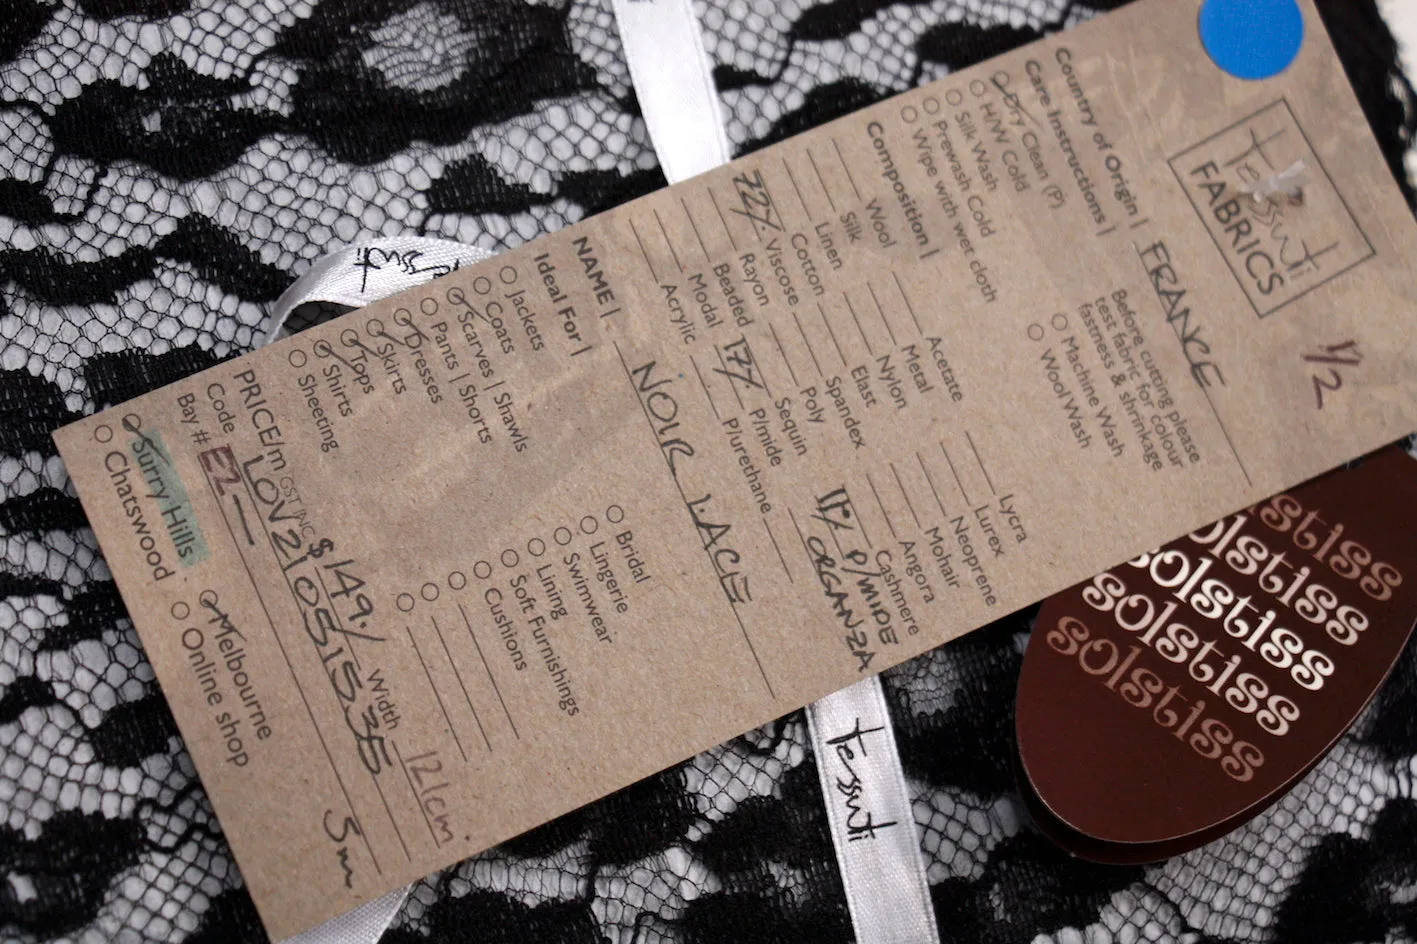 tessuti
FABRICS
1/2
Country of Origin | FRANCE
Care Instructions |
Before cutting please
test fabric for colour
fastness & shrinkage
Dry Clean (P)
H/W Cold
Silk Wash
Prewash Cold
Wipe with wet cloth
Machine Wash
Wool Wash
Composition |
Wool
Silk
Linen
Cotton
72% Viscose
Rayon
Beaded
Modal
Acrylic
Acetate
Metal
Nylon
Elast
Spandex
Poly
Sequin
17% P/mide
P/urethane
Lycra
Lurex
Neoprene
Mohair
Angora
Cashmere
11% P/MIDE
ORGANZA
NAME | NOIR LACE
Ideal For |
Jackets
Coats
Scarves | Shawls
Pants | Shorts
Dresses
Skirts
Tops
Shirts
Sheeting
Bridal
Lingerie
Swimwear
Lining
Soft Furnishings
Cushions
PRICE/m GST INC $149./ Width 121cm
Code LOV21051535
Bay # E2 5m
Surry Hills
Chatswood
Melbourne
Online shop
tessuti
tessuti
solstiss
solstiss
solstiss
solstiss